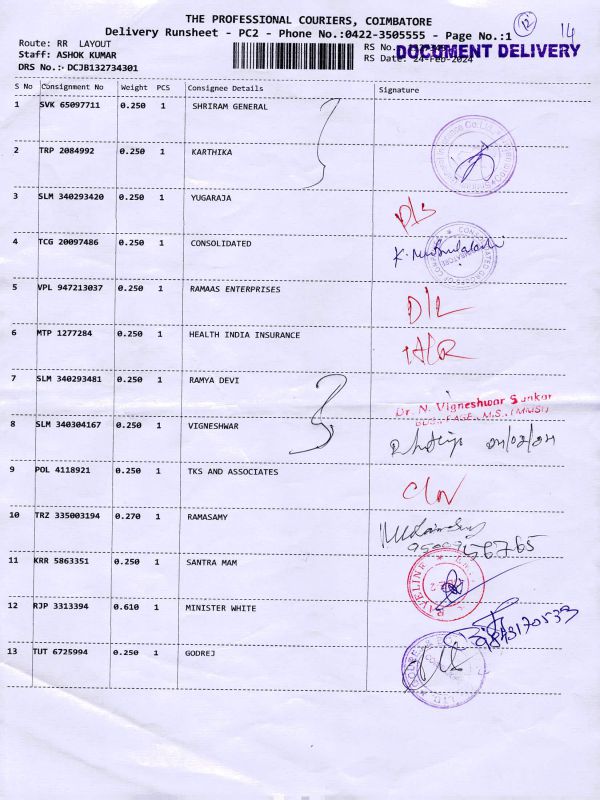 THE PROFESSIONAL COURIERS, COIMBATORE
12
14
Delivery Runsheet - PC2 - Phone No.:0422-3505555 - Page No.:1
Route: RR LAYOUT
RS No.
DOCUMENT DELIVERY
Staff: ASHOK KUMAR
RS Date: 24-Feb-2024
DRS No.:- DCJB132734301
S No Consignment No Weight PCS Consignee Details Signature
1 SVK 65097711 0.250 1 SHRIRAM GENERAL
2 TRP 2084992 0.250 1 KARTHIKA
3 SLM 340293420 0.250 1 YUGARAJA
4 TCG 20097486 0.250 1 CONSOLIDATED
5 VPL 947213037 0.250 1 RAMAAS ENTERPRISES
D/L
6 MTP 1277284 0.250 1 HEALTH INDIA INSURANCE
7 SLM 340293481 0.250 1 RAMYA DEVI
Dr. N. Vigneshwar Sankar
8 SLM 340304167 0.250 1 VIGNESHWAR
24/02/24
9 POL 4118921 0.250 1 TKS AND ASSOCIATES
10 TRZ 335003194 0.270 1 RAMASAMY
11 KRR 5863351 0.250 1 SANTRA MAM
12 RJP 3313394 0.610 1 MINISTER WHITE
13 TUT 6725994 0.250 1 GODREJ